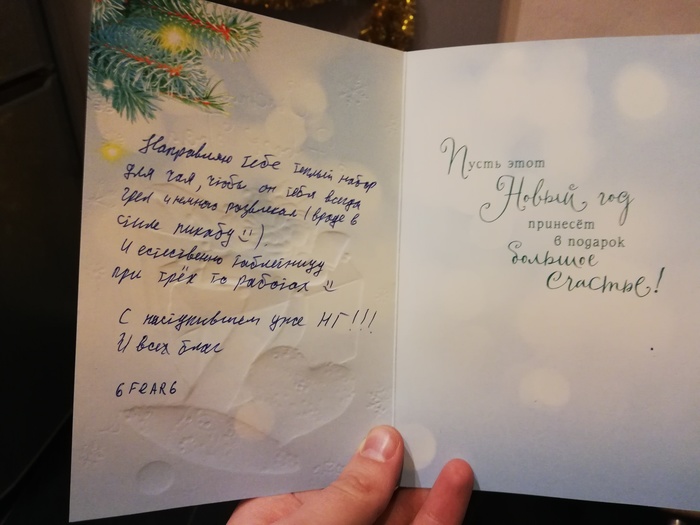 Направляю тебе теплый набор
для чая, чтобы он тебя всегда
грел и немного развлекал (вроде в
стиле пикабу :)).
И естественно таблетницу
при трёх то работах :)
С наступившем уже НГ!!!
И всех благ
6FEAR6
Пусть этот
Новый год
принесёт
в подарок
большое
счастье!